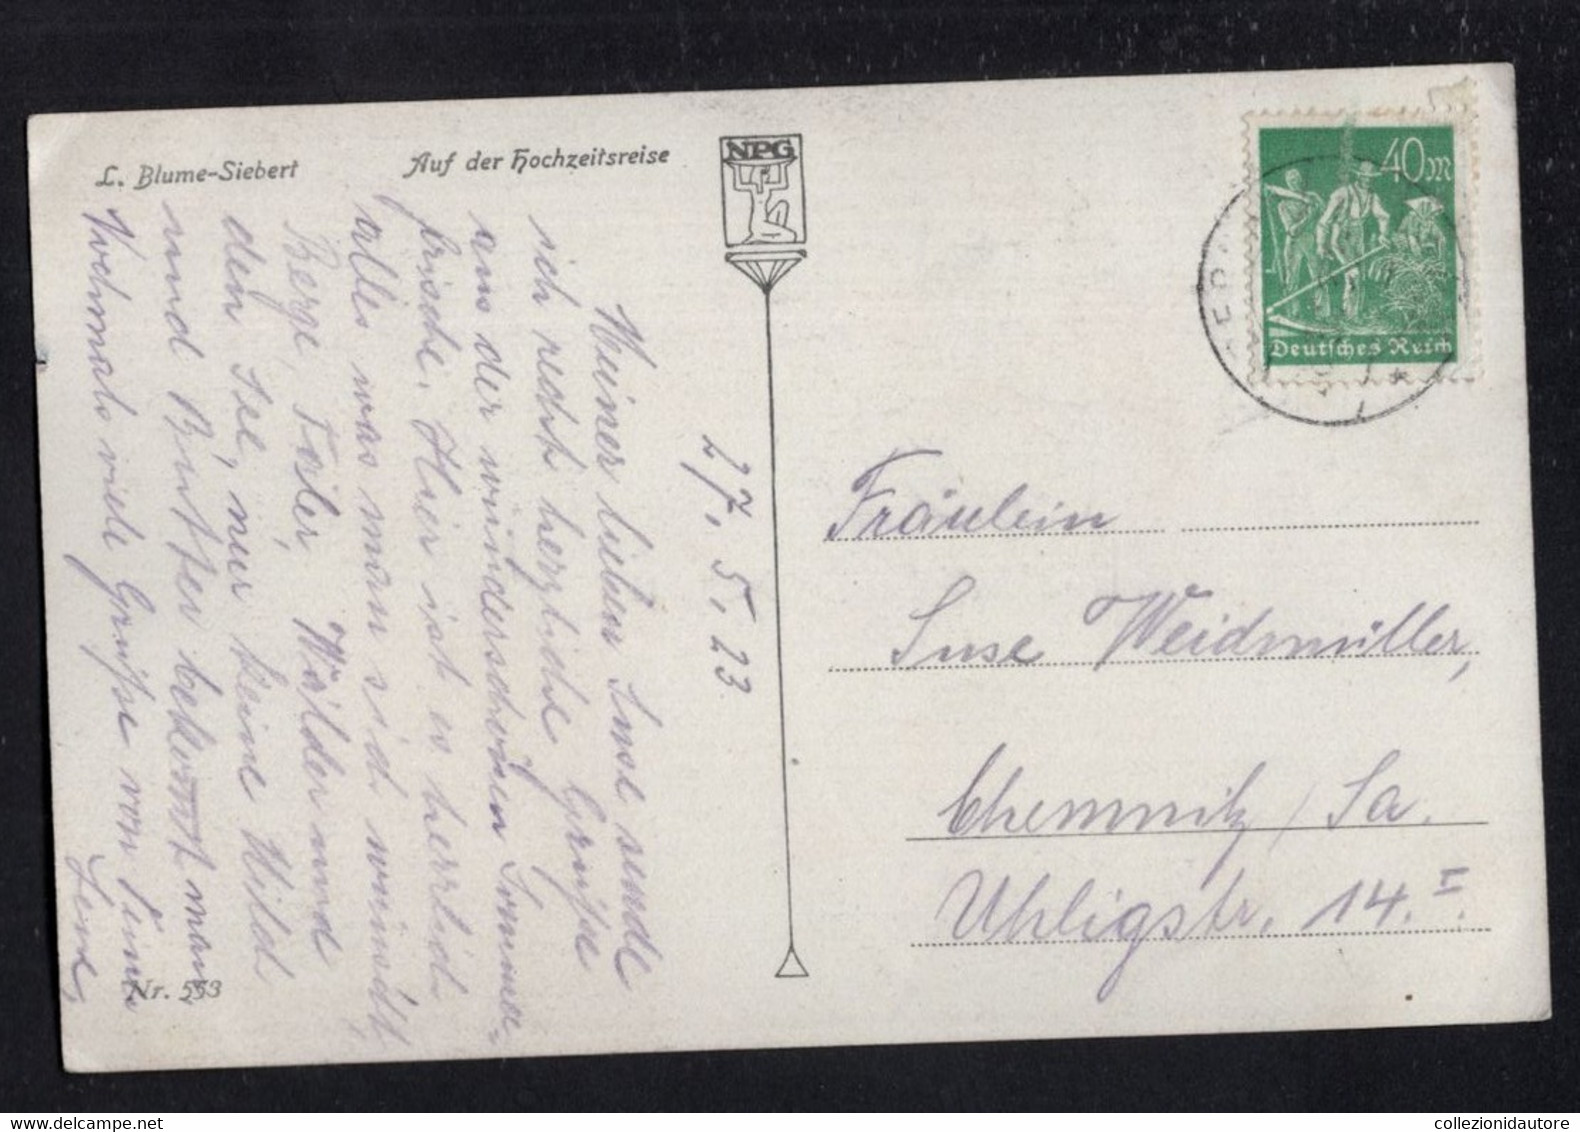 L. Blume-Siebert
Auf der Hochzeitsreise
NPG
40 M
Deutsches Reich
27. 5. 23
Meiner lieben Suse sende
ich recht herzliche Grüße
aus der wunderschönen Somme-
frische. Hier ist es herrlich
alles was man sich wünscht,
Berge, Täler, Wälder und
den See, nur keine Wild
und Butter bekommt man
Nochmals viele Grüße von
Lene,
Nr. 553
Fräulein
Suse Weidmüller,
Chemnitz / Sa.
Uhligstr. 14. I.
collezionidautore